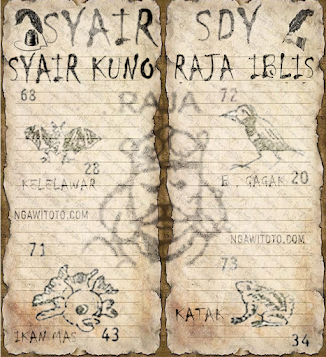 SYAIR SDY
SYAIR KUNO RAJA IBLIS
RAJA
68
28
KELELAWAR
NGAWITOTO.COM
71
IKAN MAS 43
72
B GAGAK 20
NGAWITOTO.COM
73
KATAK
34